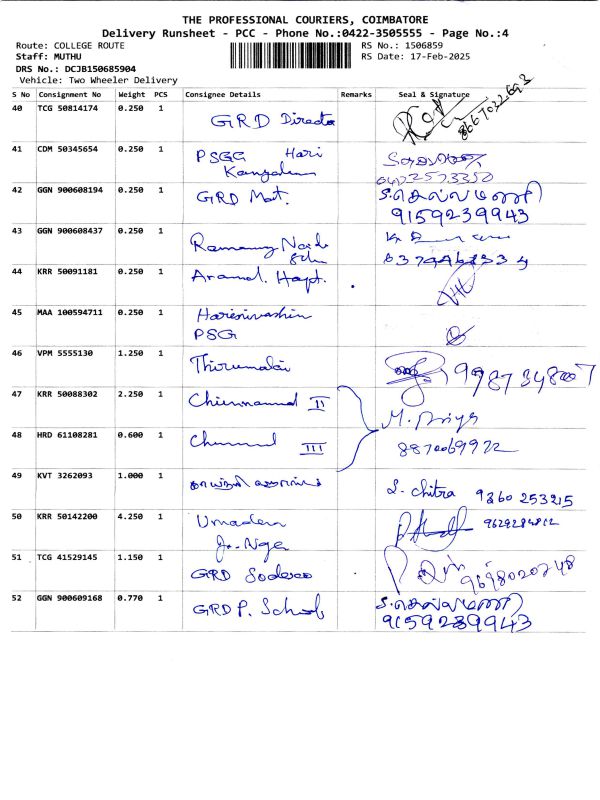 THE PROFESSIONAL COURIERS, COIMBATORE
Delivery Runsheet - PCC - Phone No.:0422-3505555 - Page No.:4
Route: COLLEGE ROUTE
RS No.: 1506859
Staff: MUTHU
RS Date: 17-Feb-2025
DRS No.: DCJB150685904
Vehicle: Two Wheeler Delivery
S No Consignment No Weight PCS Consignee Details Remarks Seal & Signature
40 TCG 50814174 0.250 1 GRD Director
41 CDM 50345654 0.250 1 PSGG Hari
42 GGN 900608194 0.250 1 GRD Mat. 9159239943
43 GGN 900608437 0.250 1
44 KRR 50091181 0.250 1
45 MAA 100594711 0.250 1
PSG
46 VPM 5555130 1.250 1 Thirumalai
47 KRR 50088302 2.250 1 II
48 HRD 61108281 0.600 1 III 8870069972
49 KVT 3262093 1.000 1 S. Chitra 9360 253215
50 KRR 50142200 4.250 1
51 TCG 41529145 1.150 1
GRD Sodexo
52 GGN 900609168 0.770 1 GRD P. School
9159239943